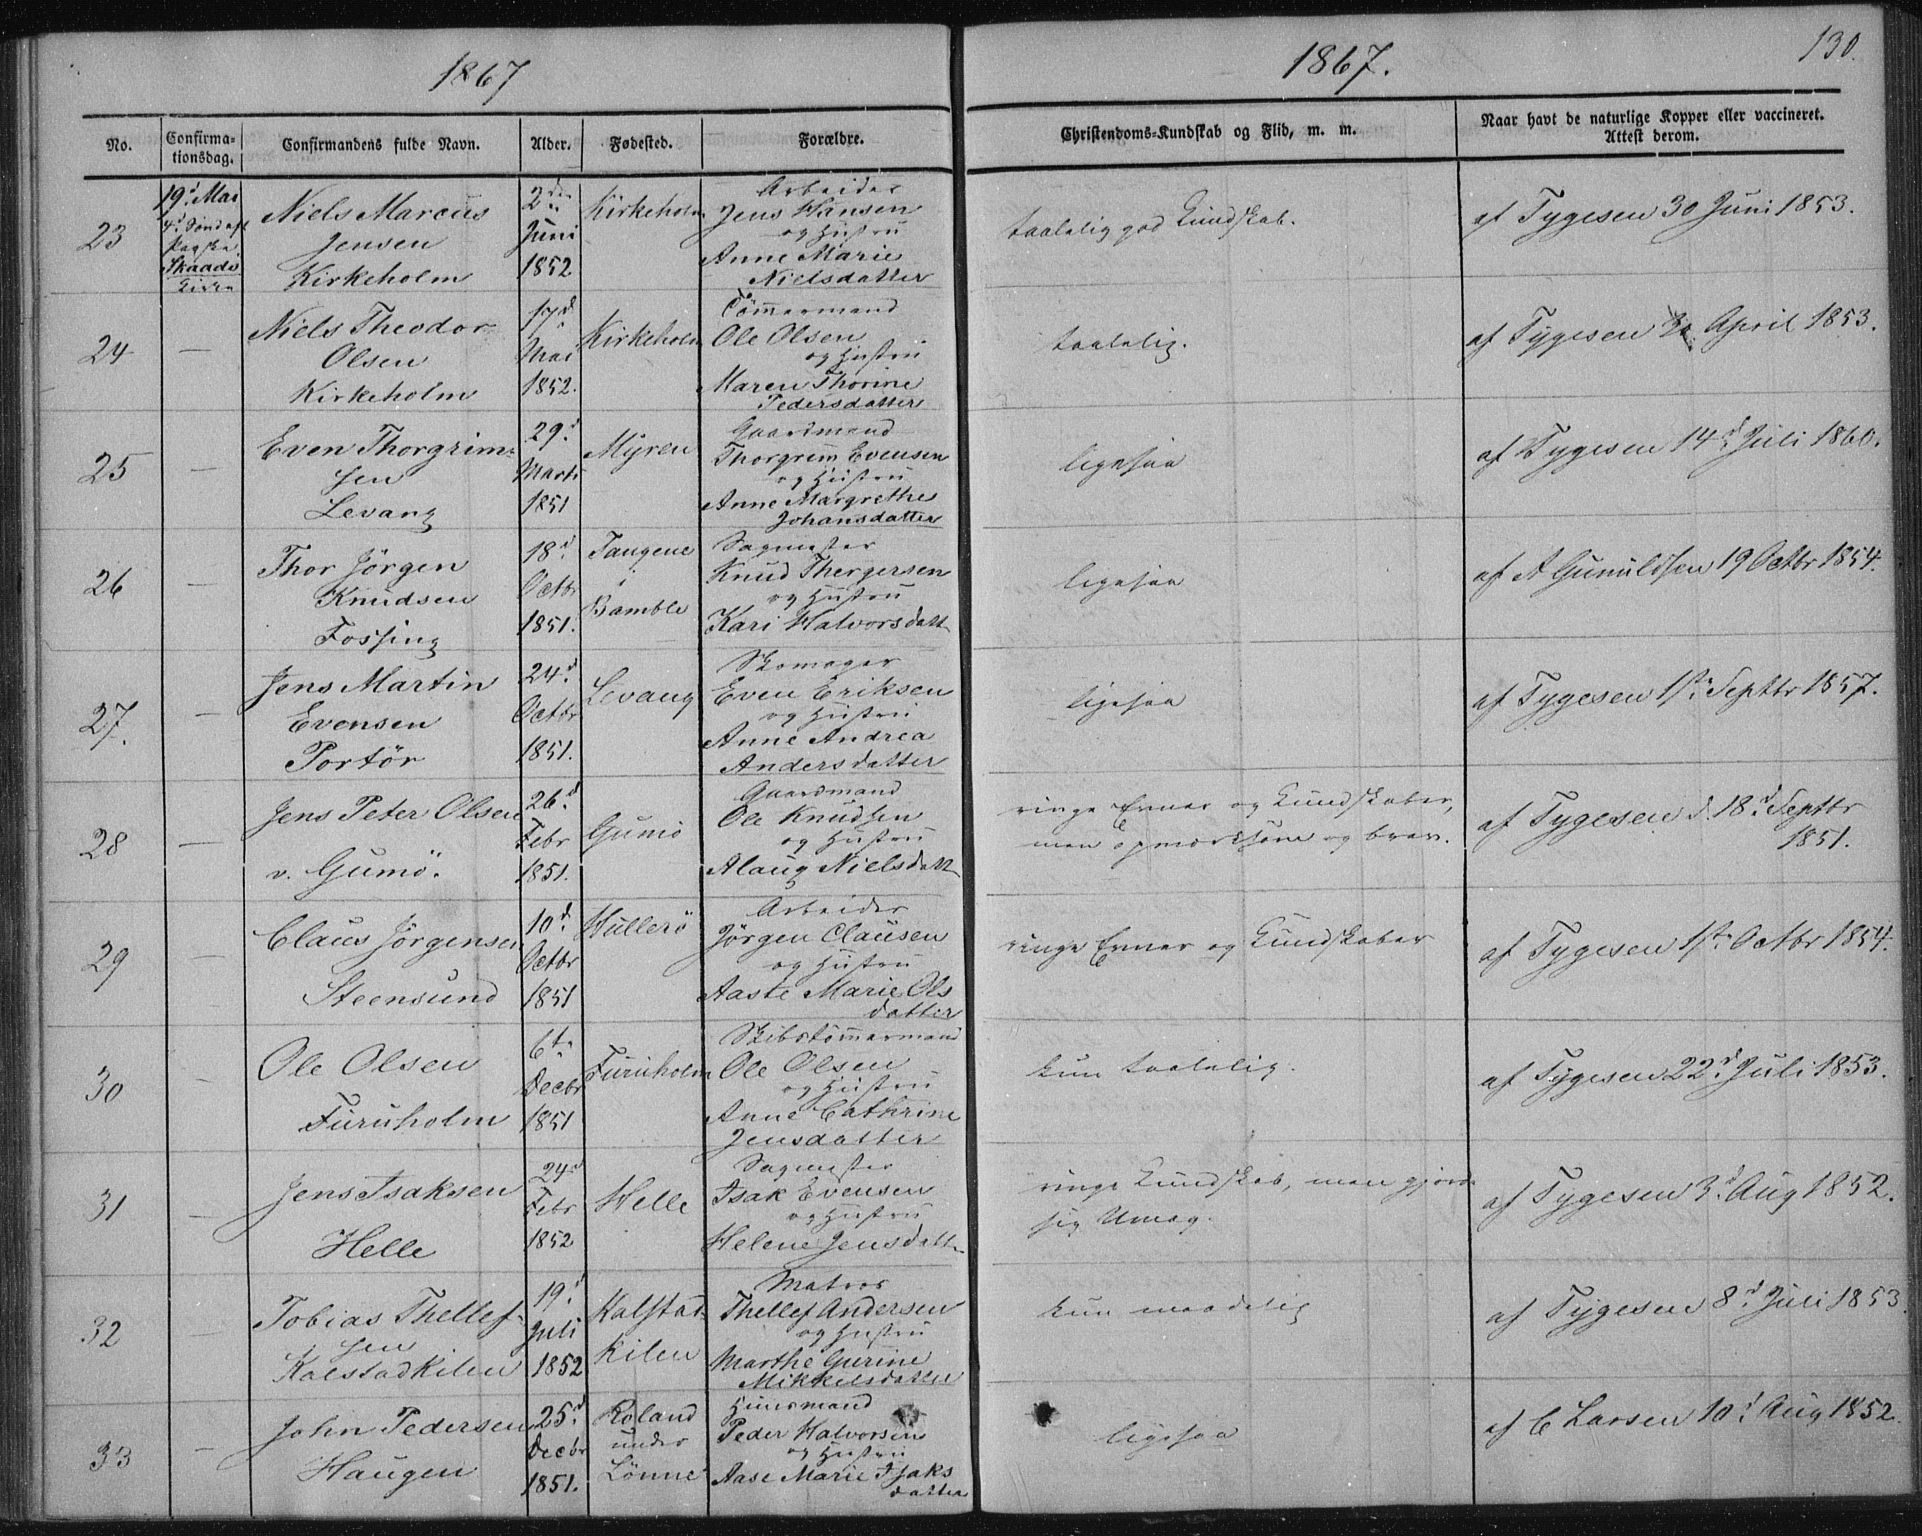 1867
1867.
130.
No.
Confirma-
tionsdag.
Confirmandens fulde Navn.
Alder.
Fødested.
Forældre.
Christendoms-Kundskab og Flid, m. m.
Naar havt de naturlige Kopper eller vaccineret.
Attest derom.
23
19d Mai
4d Sønd eft
Paaske
Skaadø
Kirke
Niels Marcus
Jensen
Kirkeholm
2den
Juni
1852
Kirkeholm
Arbeider
Jens Hansen
og Hustru
Anne Marie
Nielsdatter
taalelig god Kundskab.
af Tygesen 30 Juni 1853.
24
—
Niels Theodor
Olsen
Kirkeholm
17d
Mai
1852.
Kirkeholm
Tømmermand
Ole Olsen
og Hustru
Maren Thorine
Pedersdatter
taalelig.
af Tygesen April 1853.
25
—
Even Thorgrim-
sen
Levang
29d
Marts
1851
Myren
Gaardmand
Thorgrim Evensen
og Hustru
Anne Margrethe
Johansdatter
ligesaa
af Tygesen 14d Juli 1860.
26
—
Thor Jörgen
Knudsen
Fossing
18d
Octbr
1851.
Tangene
i
Bamble
Sagmester
Knud Thergersen
og Hustru
Kari Halvorsdatt
ligesaa
af A Gunuldsen 19 Octbr 1854.
27.
—
Jens Martin
Evensen
Portör
24d
Octbr
1851.
Levang
Skomager
Even Eriksen
og Hustru
Anne Andrea
Andersdatter
ligesaa
af Tygesen 1ste Septbr 1857.
28
—
Jens Peter Olsen
v. Gumö.
26d
Febr
1851.
Gumö
Gaardmand
Ole Knudsen
og Hustru
Alaug Nielsdatt
ringe Evner og Kundskaber,
men opmærksom og brav.
af Tygesen d. 18d Septbr
1851.
29
—
Claus Jörgensen
Steensund
10d
Octbr
1851
Hullerö
Arbeider
Jörgen Clausen
og Hustru
Aaste Marie Ols
datter
ringe Evner og Kundskaber
af Tygesen 1ste Octbr 1854.
30
—
Ole Olsen
Furuholm
6te
Decbr
1851
Furuholm
Skibstømmermand
Ole Olsen
og Hustru
Anne Cathrine
Jensdatter
kun taalelig.
af Tygesen 22d Juli 1853.
31
—
Jens Isaksen
Helle
24d
Febr
1852
Helle
Sagmester
Isak Evensen
og Hustru
Helene Jensdatt
ringe Kundskab, men gjorde
sig Umag.
af Tygesen 3d Aug 1852.
32
—
Tobias Thellef-
sen
Kalstadkilen
19d
Juli
1852
Kalstad-
kilen
Matros
Thellef Andersen
og Hustru
Marthe Gurine
Mikkelsdatter
kun maadelig
af Tygesen 8d Juli 1853.
33
—
John Pedersen
Haugen
25d
Decbr
1851.
Roland
under
Lönne
Huusmand
Peder Halvorsen
og Hustru
Aase Marie Isaks
datter
ligesaa
af C Larsen 10d Aug 1852.